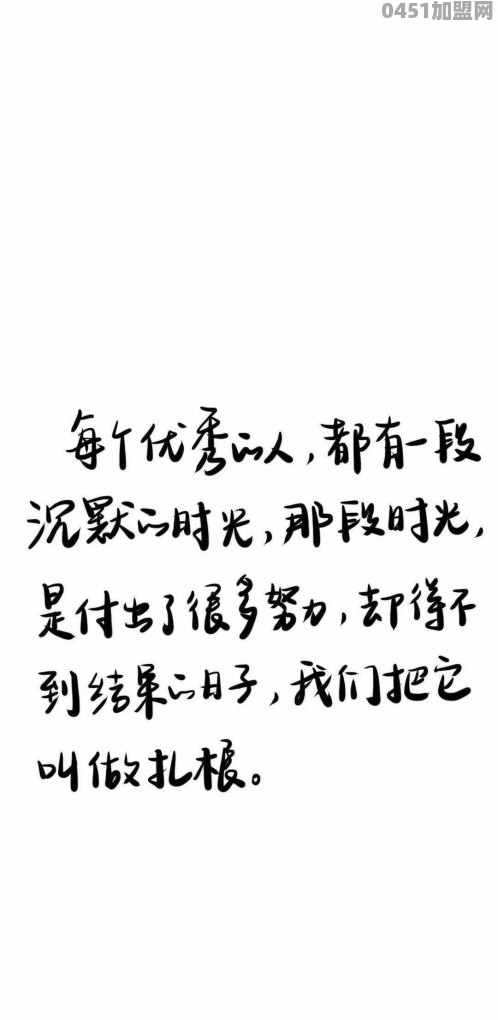 0451加盟网
每个优秀的人，都有一段
沉默的时光，那段时光，
是付出了很多努力，却得不
到结果的日子，我们把它
叫做扎根。